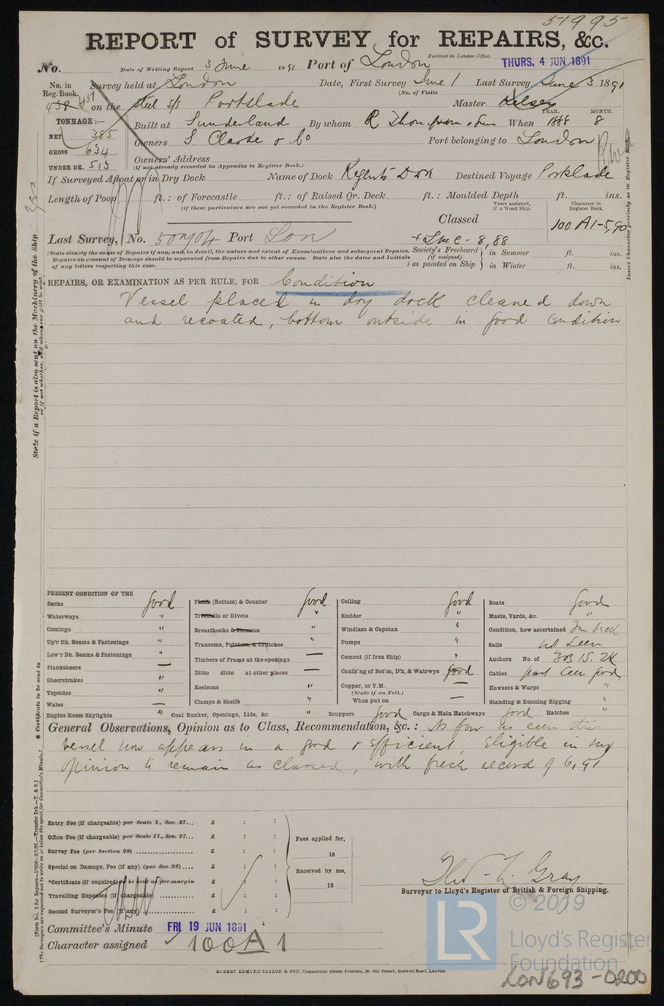 51995
REPORT of SURVEY for REPAIRS, &c.
Received in London Office,
No. Date of Writing Report 3 June 1891 Port of London THURS. 4 JUN 1891
No. in Reg. Book. Survey held at London Date, First Survey June 1 Last Survey June 3 1891
(No. of Visits
on the Steel S/S Portslade Master Kelsey
TONNAGE:— YEAR. MONTH.
Built at Sunderland By whom R Thompson & Son When 1888 8
NET 385
GROSS 634 Owners S. Clarke & Co Port belonging to London
UNDER DK. 513 Owners' Address
(if not already recorded in Appendix to Register Book.)
If Surveyed Afloat or in Dry Dock Name of Dock Regents D Dk Destined Voyage Portslade
Length of Poop ft.: of Forecastle ft.: of Raised Qr. Deck ft.: Moulded Depth ft. ins.
(if these particulars are not yet recorded in the Register Book.)
Years assigned, if a Wood Ship. Character in Register Book.
Classed 100 A1-5,90
Last Survey, No. 50704 Port Lon + LMC - 8,88
(State clearly the causes of Repairs if any, and, in detail, the nature and extent of Examinations and subsequent Repairs.
Repairs on account of Damage should be separated from Repairs due to other causes. State also the dates and Initials
of any letters respecting this case.
Society's Freeboard (if assigned) as painted on Ship
in Summer ft. ins.
in Winter ft. ins.
REPAIRS, OR EXAMINATION AS PER RULE, FOR Condition
Vessel placed in dry dock cleaned down
and recoated, bottom outside in good condition
State if a Report is also sent on the Machinery of the Ship
PRESENT CONDITION OF THE
Decks good
Waterways "
Comings "
Up'r Dk. Beams & Fastenings "
Low'r Dk. Beams & Fastenings "
Planksheers —
Sheerstrakes "
Topsides "
Wales —
Engine Room Skylights "
Plank (Bottom) & Counter good
Treenails or Rivets "
Breasthooks & Stemson "
Transoms, Pointers, & Crutches "
Timbers of Frame at the openings —
Ditto ditto at other places —
Keelsons "
Clamps & Shelfs —
Coal Bunker, Openings, Lids, &c "
Ceiling good
Rudder "
Windlass & Capstan "
Pumps "
Cement (if Iron Ship) "
Caulk'ng of Bot'm, D'k, & Watrwys good
Copper, or Y.M. —
(State if on Felt.)
When put on —
Scuppers good Cargo & Main Hatchways good Hatches "
Boats good
Masts, Yards, &c. "
Condition, how ascertained
Sails not seen
Anchors No. of 3B 1S. 2K
Cables part seen good
Hawsers & Warps "
Standing & Running Rigging "
General Observations, Opinion as to Class, Recommendation, &c.: As far as seen this
vessel now appears in a good & efficient, eligible in my
opinion to remain as classed, with fresh record of 6,91
Entry Fee (if chargeable) per Scale I., Sec. 27... £ : :
Office Fee (if chargeable) per Scale II., Sec. 27... £ : :
Survey Fee (per Section 28) £ : :
Special on Damage, Fee (if any) (per Sec. 28) £ : :
*Certificate (if required) to be sent as per margin £ : :
Travelling Expenses (if chargeable) £ : :
Second Surveyor's Fee (if any) £ : :
Fees applied for,
18
Received by me,
18
Surveyor to Lloyd's Register of British & Foreign Shipping.
Committee's Minute FRI 19 JUN 1891
Character assigned 100A1
ROBERT EDMUND TAYLOR & SON, Commercial Steam Printers, 19, Old Street, Goswell Road, London.
LR
© 2019
Lloyd's Register
Foundation
LON693-0200